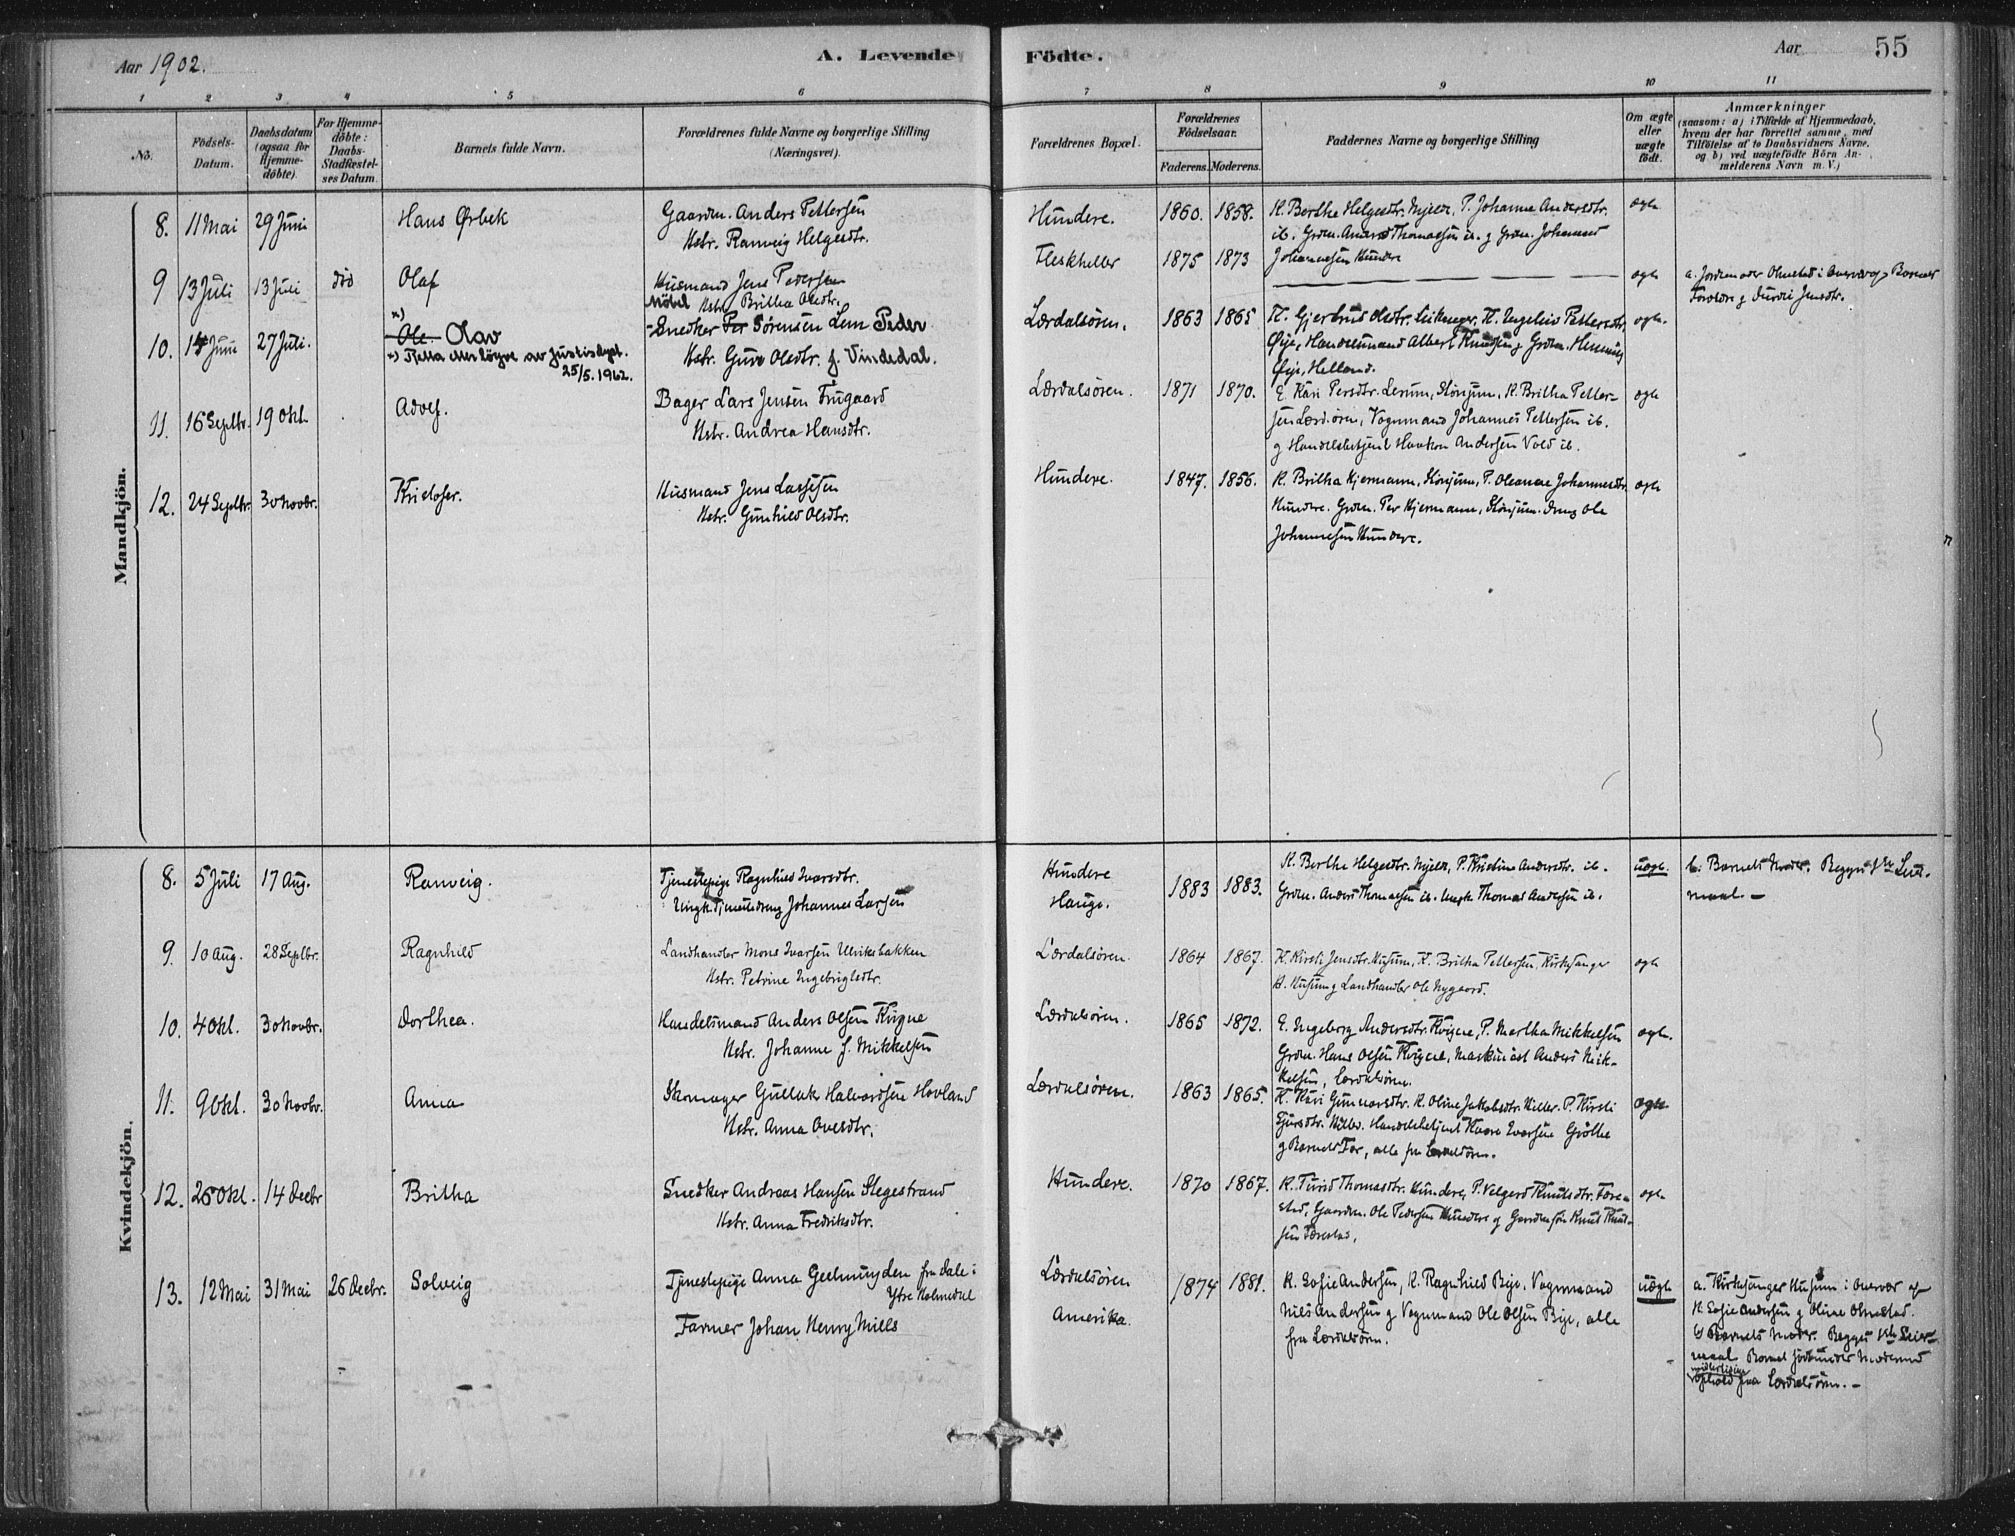 Aar 1902.
A. Levende Födte.
Aar
55
1 2 3 4 5 6 7 8 9 10 11
No.
Födsels-Datum.
Daabsdatum (ogsaa for Hjemme-döbte).
For Hjemme-döbte: Daabs-Stadfæstel-ses Datum.
Barnets fulde Navn.
Forældrenes fulde Navne og borgerlige Stilling (Næringsvei).
Forældrenes Bopæl.
Forældrenes Födselsaar.
Faderens. Moderens.
Faddernes Navne og borgerlige Stilling
Om ægte eller uægte födt.
Anmærkninger
(saasom: a) i Tilfælde af Hjemmedaab,
hvem der har forrettet samme, med
Tilföielse af to Daabsvidners Navne.
og b) ved uægtefödte Börn An-
melderens Navn m. V.)
Mandkjön.
8. 11 Mai 29 Juni Hans Ørbek
Gaardm. Anders Pettersen
Hstr. Ranveig Helgesdtr.
Hundere. 1860. 1858.
K. Berthe Helgesdtr. Njeld, P. Johanne Andersdtr.
ib. Grdm. Anders Thomassen ib. g Grdm. Johannes
Johannessen Hundere
ægte
9 13 Juli 13 Juli död Olaf
Husmand Jens Pedersen
Hstr. Britha Olesdtr.
Fleskheller 1875 1873
ægte
a. Jordemoder Olmstad i Overvær af Barnets
Forældre g Guri Jensdtr.
10. 15 Juni 27 Juli. x) Ole. Olav
x) Retta etter løyve av Justisdept.
25/5. 1962.
Møbel
-Snedker Per Sörensen Lem Peder
Hstr. Guro Olesdtr. f. Vindedal.
Lærdalsören. 1863 1865
K. Gjertrud Olsdtr. Leikanger, K. Ingeleiv Pettersdtr.
Øije, Handelsmand Albert Knudsen g Grdm. Henning
Øije, Helland.
ægte
11. 16 Septbr. 19 Okt. Adolf.
Bager Lars Jensen Frugaard
Hstr. Andrea Hansdtr.
Lærdalsören. 1871 1870.
E. Kari Persdtr. Lerum, Stönjum, K. Britha Petter-
sen Lærdsören, Vognmand Johannes Pettersen ib.
g Handelsbetjent Haakon Andersen Vold ib.
ægte
12. 24 Septbr. 30 Novbr. Kristofer.
Husmand Jens Lassesen
Hstr. Gunhild Olsdtr.
Hundere. 1847. 1856.
K. Britha Hjermann, Stönjum, P. Oleanna Johannesdtr.
Hundere. Grdm. Per Hjermann, Stönjum. Dreng Ole
Johannessen Hundere.
ægte
Kvindekjön.
8. 5 Juli 17 Aug. Ranveig.
Tjenestepige Ragnhild Ivarsdtr.
Ungk. Tjenestedreng Johannes Larsen
Hundere
Hauge. 1883 1883.
K. Berthe Helgesdtr. Njeld, P. Kristine Andersdtr. ib.
Grdm. Anders Thomassen ib. Ungk Thomas Andersen ib.
uægte.
b. Barnets Moder. Begges 1ste Leier-
maal. —
9. 10 Aug. 28 Septbr. Ragnhild
Landhandler Mons Ivarsen Ulriksbakken
Hstr. Petrine Ingebrigtsdtr.
Lærdalsören. 1864 1867.
K. Kirsti Jensdtr. Husum, K. Britha Pettersen, Kirkesanger
H. Husum g Landhandler Ole Nygaard.
ægte
10. 4 Okt. 30 Novbr. Dorthea.
Handelsmand Anders Olsen Kvigne
Hstr. Johanne f. Mikkelsen
Lærdalsören. 1865 1872.
E. Ingeborg Andersdtr. Kvigne, P. Martha Mikkelsen
Grdm. Hans Olsen Kvigne, Maskinist Anders Mik-
kelsen, Lærdalsören.
ægte.
11. 9 Okt. 30 Novbr. Anna
Skomager Gullak Halvordsen Hovland
Hstr. Anna Ovesdtr.
Lærdalsören. 1863 1865.
K. Kari Gunnarsdtr. K. Oline Jakobsdtr. Hiller. P. Kirsti
Sjursdtr. Handelsbetjent Iversen Gröthe
g Barnets Far, alle fra Lærdalsören.
ægte
12. 25 Okt. 14 Decbr Britha
Snedker Andreas Hansen Stegestrand
Hstr. Anna Fredriksdtr.
Hundere. 1870 1867.
K. Turid Thomasdtr. Hundere, P. Velgerd Knutsdtr. Fære-
stad, Gaardm. Ole Pedersen Hundere g Gaardmsön Knud Knud-
sen Færestad.
ægte
13. 12 Mai 31 Mai 26 Decbr. Solveig
Tjenestepige Anna Geelmuyden fra Dale i
Ytre Holmedal
Farmer Johan Henry Mills
Lærdalsören
Amerika. 1874 1881.
K. Sofie Andersen, K. Ragnhild Bye, Vognmand
Nils Andersen g Vognmand Ole Olsen Bye, alle
fra Lærdalsören.
uægte
a. Kirkesanger Husum i Overvær af
K. Sofie Andersen g Oline Olmstad.
b) Barnets Moder. Begges 1ste Leier-
maal Barnet födt under Moderens
midlertidige
Ophold paa Lærdalsören. —